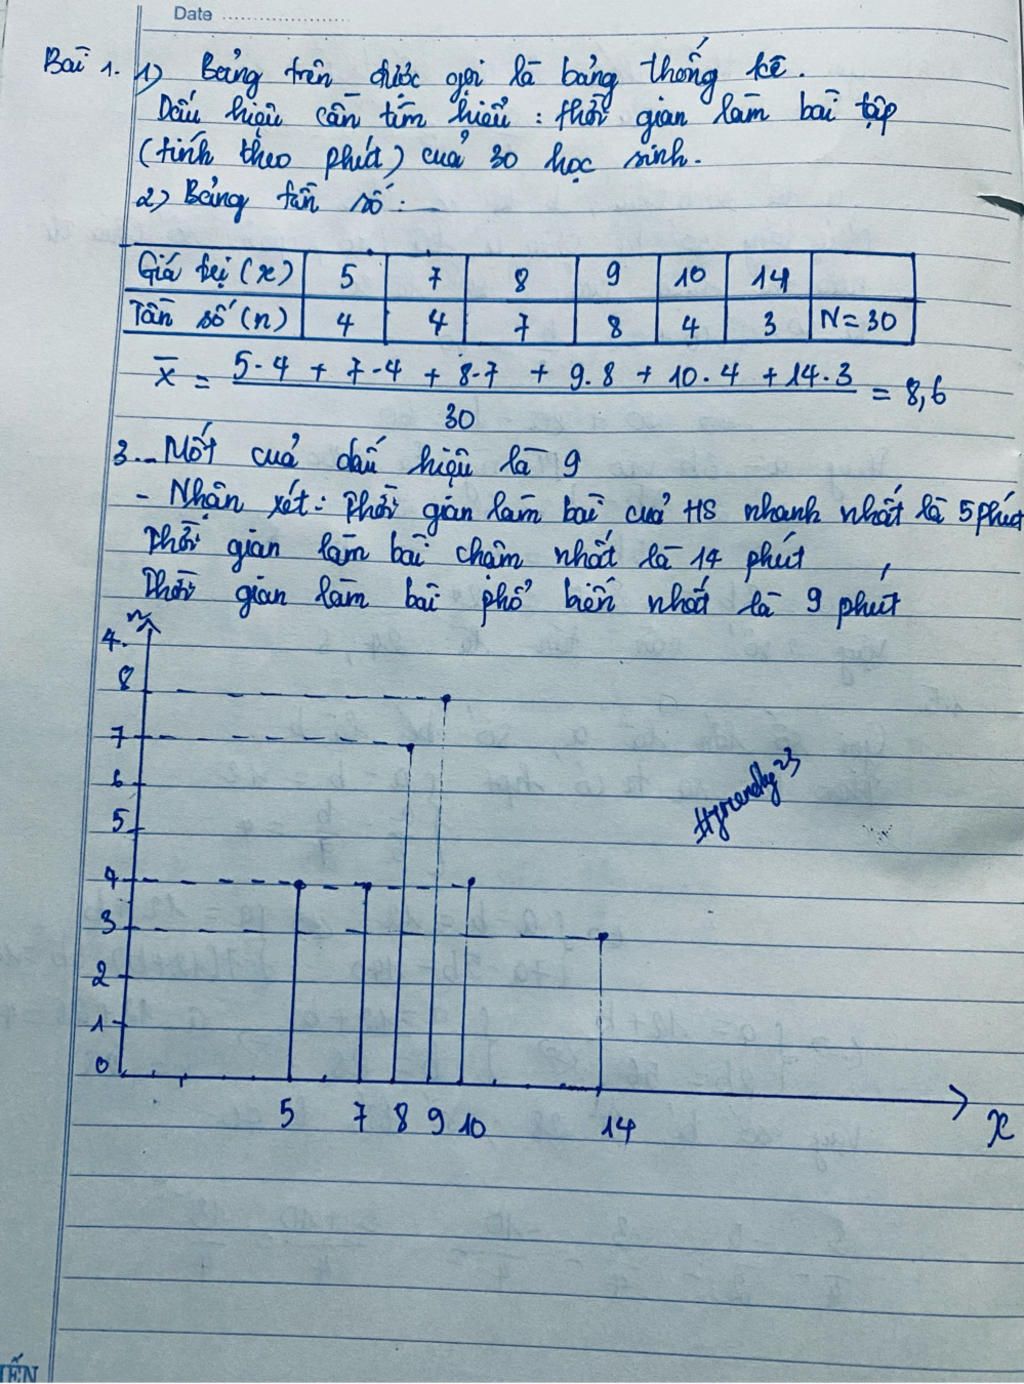 Date
Bài 1. 1) Bảng trên được gọi là bảng thống kê.
Dấu hiệu cần tìm hiểu : thời gian làm bài tập
(tính theo phút) của 30 học sinh.
2) Bảng tần số :
Giá trị (x) 5 7 8 9 10 14
Tần số (n) 4 4 7 8 4 3 N = 30
x̄ = (5·4 + 7·4 + 8·7 + 9.8 + 10.4 + 14.3) / 30 = 8,6
3. - Mốt của dấu hiệu là 9
- Nhận xét : Thời gian làm bài của HS nhanh nhất là 5 phút
Thời gian làm bài chậm nhất là 14 phút
Thời gian làm bài phổ biến nhất là 9 phút
4. n
8
7
6
5
4
3
2
1
0
5 7 8 9 10 14 x